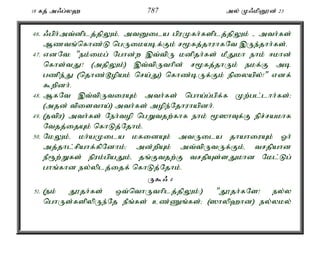 18 கத் அஃப்லஹ 787 அல் முஃமினூன் 23
46. ஃபிர்அவ்னிடத்திலும், அவனுடைய பிரமுகர்களிடத்திலும் , அவர்கள்
ஆணவங்கொண்டு பெருமையடிக்கும் சமூகத்தாராகவே இருந்தார்கள்.
47. எனவே "நம்மைப் போன்ற இவ்விரு மனிதர்கள் மீதுமா நாம் ஈமான்
கொள்வது? (அதிலும்) இவ்விருவரின் சமூகத்தாரும் நமக்கு அடி
பணிந்து (தொண்டூழியம் செய்து) கொண்டிருக்கும் நிலையில்!" எனக்
கூறினர்.
48. ஆகவே இவ்விருவரையும் அவர்கள் பொய்ப்பிக்க முற்பட்டார்கள்;
(அதன் விளைவாய்) அவர்கள் அழிந்தோராயினர்.
49. (தவிர) அவர்கள் நேர்வழி பெறுவதற்காக நாம் மூஸாவுக்கு நிச்சயமாக
வேதத்தையும் கொடுத்தோம்.
50. மேலும், மர்யமுடைய மகனையும் அவருடைய தாயாரையும் ஓர்
அத்தாட்சியாக்கினோம்; அன்றியும் அவ்விருவருக்கும், வசதியான
நீரூற்றுகள் நிரம்பியதும், தங்குவதற்கு வசதியுள்ளதுமான மேட்டுப்
பாங்கான நல்லிடத்தைக் கொடுத்தோம்.
ருகூஃ 4
51. (நம் தூதர்கள் ஒவ்வொருவரிடத்திலும்:) "தூதர்களே! நல்ல
பொருள்களிலிருந்தே நீங்கள் உண்ணுங்கள்; (ஸாலிஹான) நல்லமல்